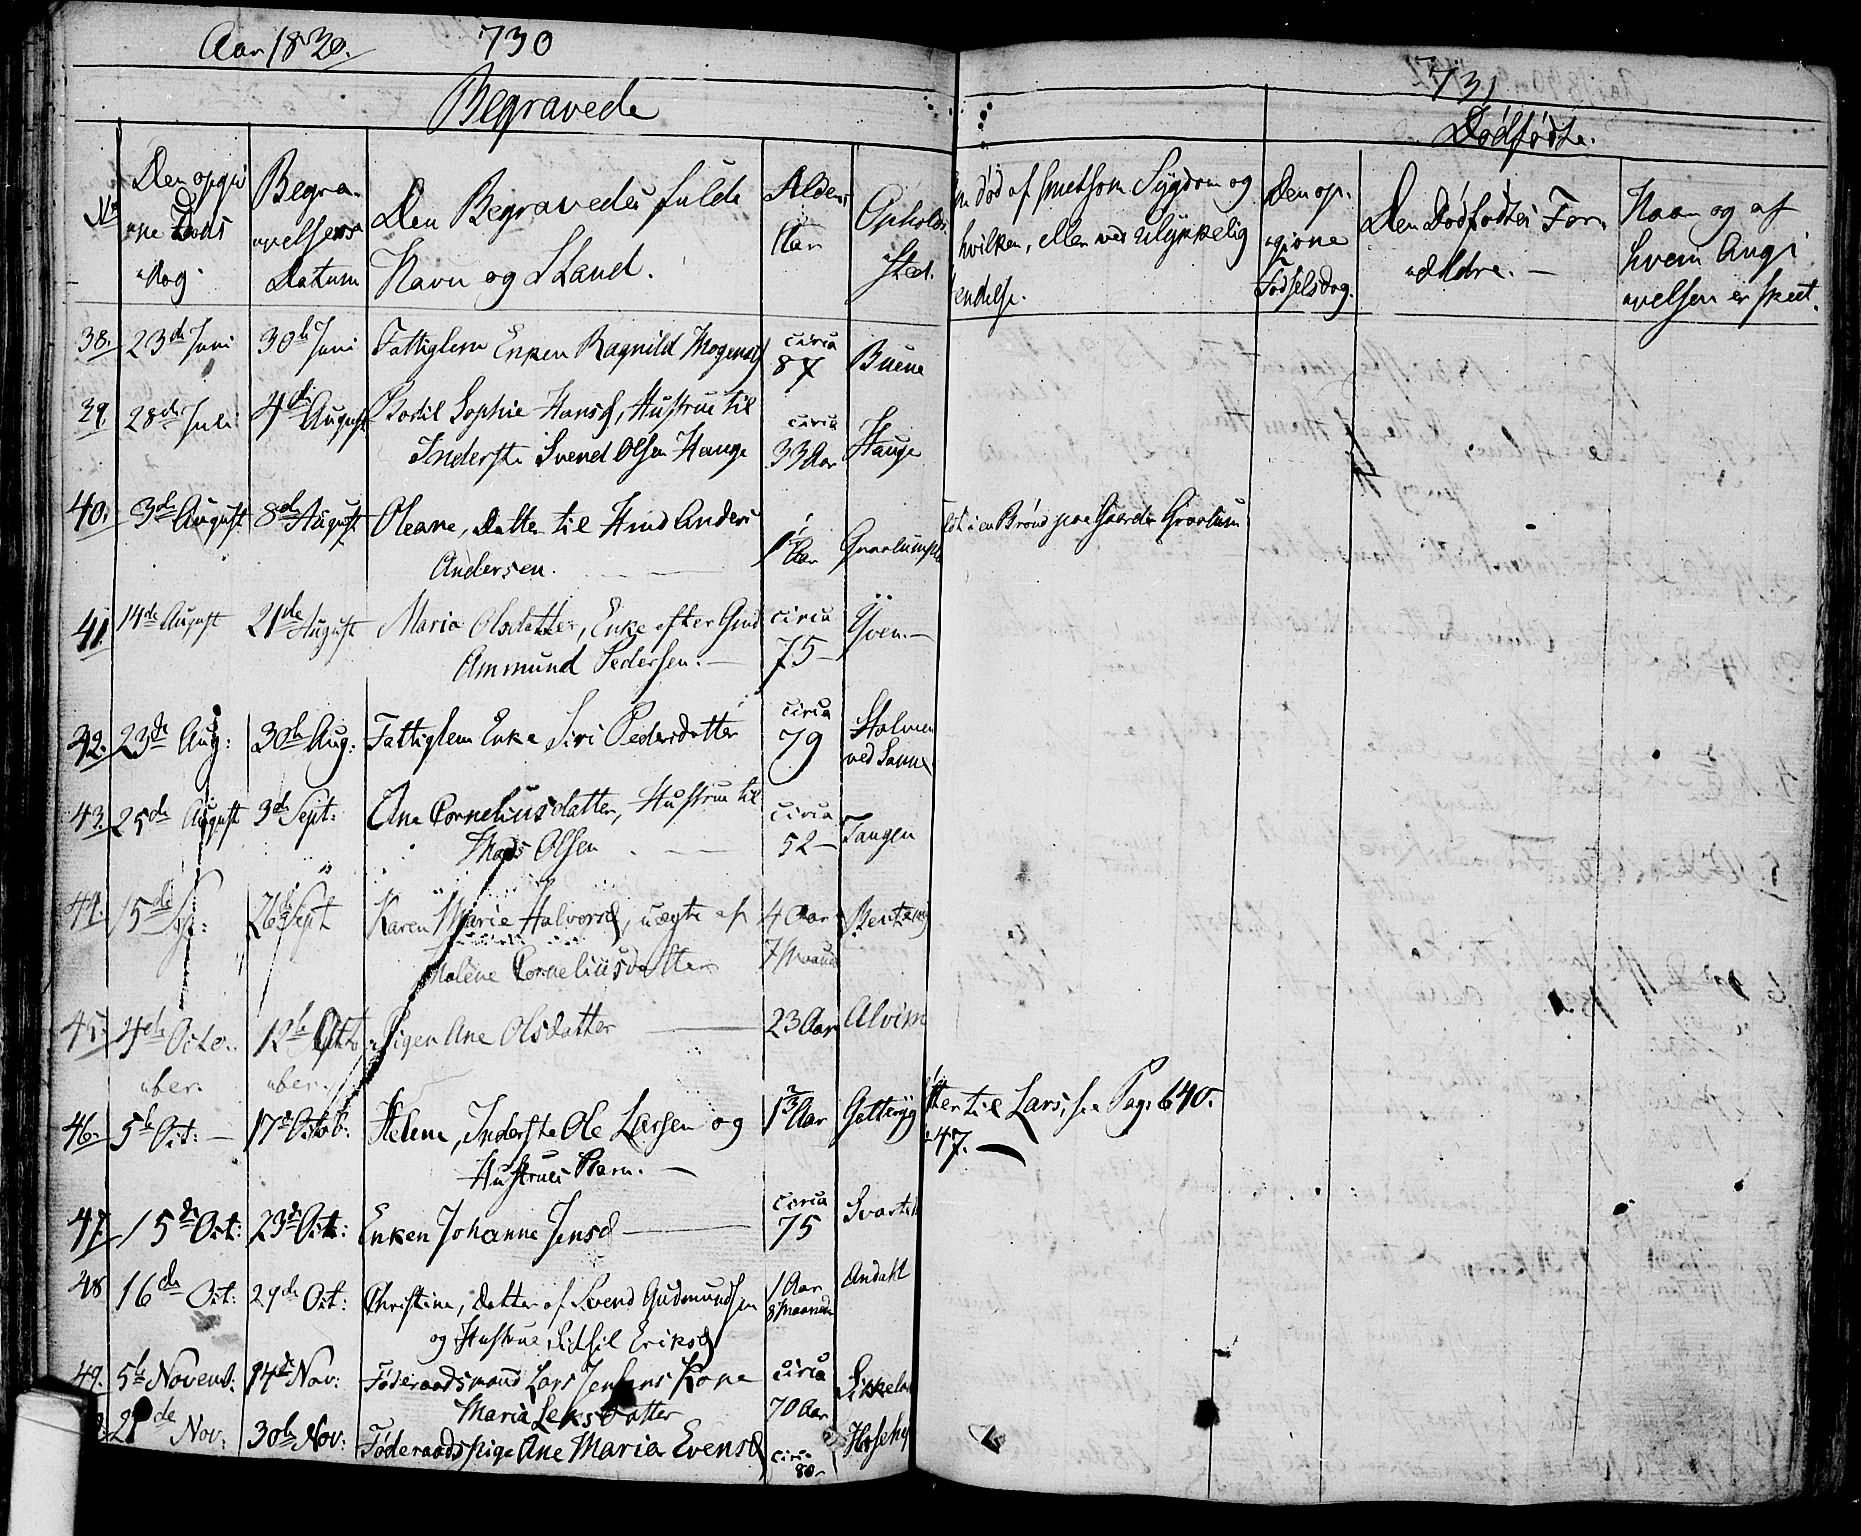 Aar 1830.
730
Begravede
No
Den opgivne Døds Dag.
Begravelses Datum
Den Begravedes fulde Navn og Stand.
Alder Aar
Opholds Sted.
38. 23de Juni 30te Juni Fattiglem Enken Ragnild Mogensd circa 87 Buene
39. 28de Juli 4de August Bodil Sophie Hansd, Hustrue til circa 33 Aar Hauge
Inderste Svend Olsen Hauge
40. 3de August 8de August Oleane, Datter til Anders Aar
Andersen.
41. 14de August 21de August Maria Olsdatter, Enke efter circa 75 Yven.
Ammund Pedersen.
42. 23de Aug: 30te Aug: Fattiglem Enke Siri Pedersdatter circa 79 ved Sanne
43. 25de August 3de Sept: Ane Corneliusdatter, Hustrue til circa 52 Tangen
Mads Olsen
44. 15de Sept: 26de Sept Karen Marie Halvorsd, uægte af 4 Aar
Malene Corneliusdatter 7 Maaned
45. 4de October 12te October Pigen Ane Olsdatter 23 Aar Alvim
46. 5te Oct: 17de Octob: Helene, Inderste Ole Larsen og Aar
Hustrues Barn.
47. 15de Oct: 23de Oct: Enken Johanne Jensd circa 75
48 16de Oct: 24de Oct: Christine, Datter af Svend Gudmundsen 1 Aar Andakt
og Hustrue Sidsil Eriksd 8 Maaneder
49. 5te Novemb: 14de Nov: Føderaadsmand Lars Jensens Kone circa
Maria 70 Aar
Nov: 30te Nov: Føderaadspige Ane Maria Evensd circa 80
731
Dødfødte.
død af smetsom Sygdom og
hvilken, eller ved ulykkelig
endelse.
Den opgivne Fødselsdag.
Den Dødfødtes Forældre.
Navn og af hvem Angivelsen er skeet.
i en Brønd paa Gaarden Graalum
til Lars, see Pag: 640.
47.